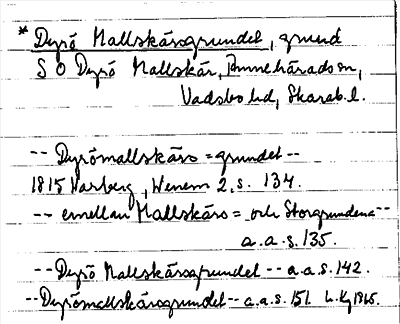 * Dyrö Mallskärsgrundet, grund
S O Dyrö Mallskär, Brunnehärads sn,
Vadsbo hd, Skarab.l.
-- Dyrömallskärs=grundet --
1815 Warberg, Wenern 2, s. 134.
-- emellan Mallskärs= och Storgrundena --
a.a.s. 135.
-- Dyrö Mallskärsgrundet -- a.a.s. 142.
-- Dyrömallskärsgrundet -- a.a.s. 151 1865.